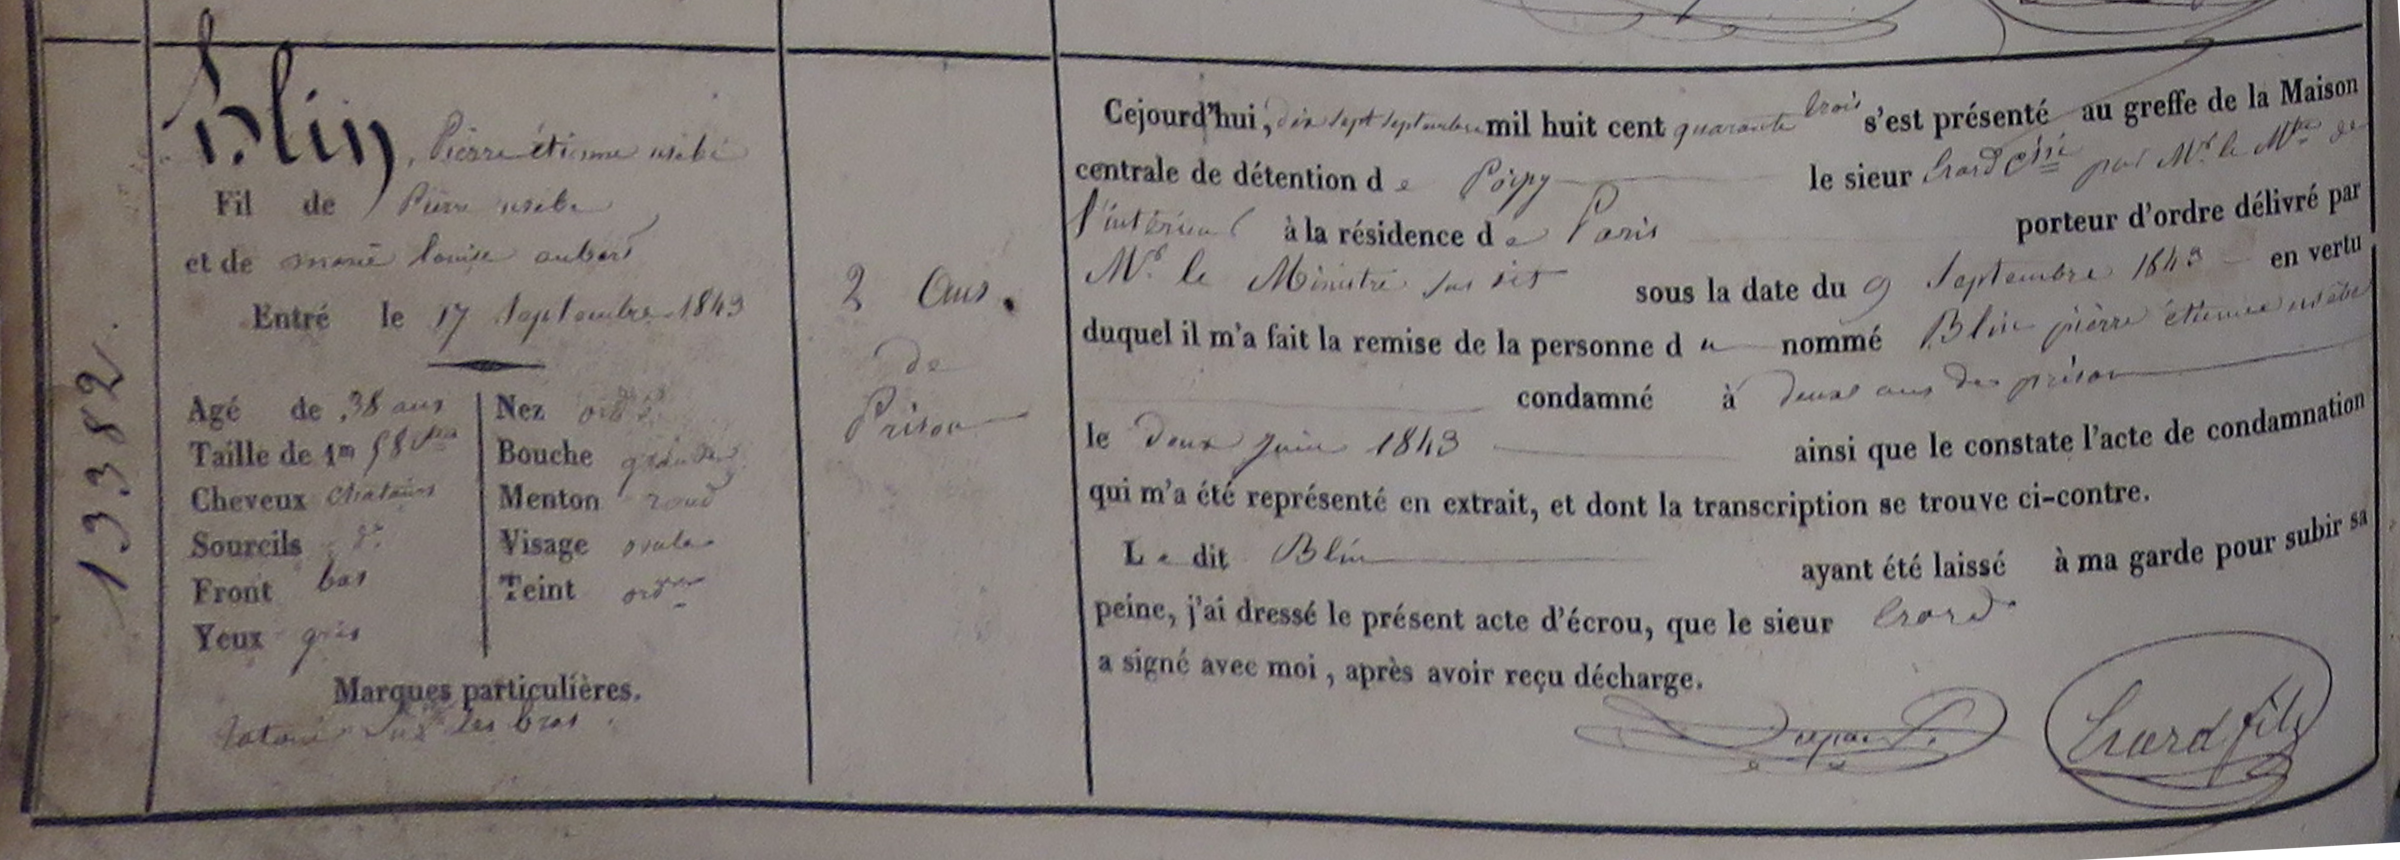 13382.
Blin, Pierre étienne usèbe
Fil de Pierre usèbe
et de marie louise aubert
Entré le 17 Septembre 1843
Agé de 38 ans
Taille de 1m 58
Cheveux chatains
Sourcils d°
Front bas
Yeux gris
Nez ord
Bouche grande
Menton rond
Visage ovale
Teint ordre
Marques particulières.
tatoué sur les bras.
2 Ans.
de
Prison
Cejourd'hui, dix sept septembre mil huit cent quarante trois s'est présenté au greffe de la Maison
centrale de détention de Poissy le sieur par Mr. le Mtre de
l'intérieur à la résidence de Paris porteur d'ordre délivré par
Mr. le Ministre sus dit sous la date du 9 Septembre 1843 en vertu
duquel il m'a fait la remise de la personne du nommé Blin pierre étienne usèbe
condamné à deux ans de prison
le deux juin 1843 ainsi que le constate l'acte de condamnation
qui m'a été représenté en extrait, et dont la transcription se trouve ci-contre.
Le dit Blin ayant été laissé à ma garde pour subir sa
peine, j'ai dressé le présent acte d'écrou, que le sieur
a signé avec moi, après avoir reçu décharge.
fils